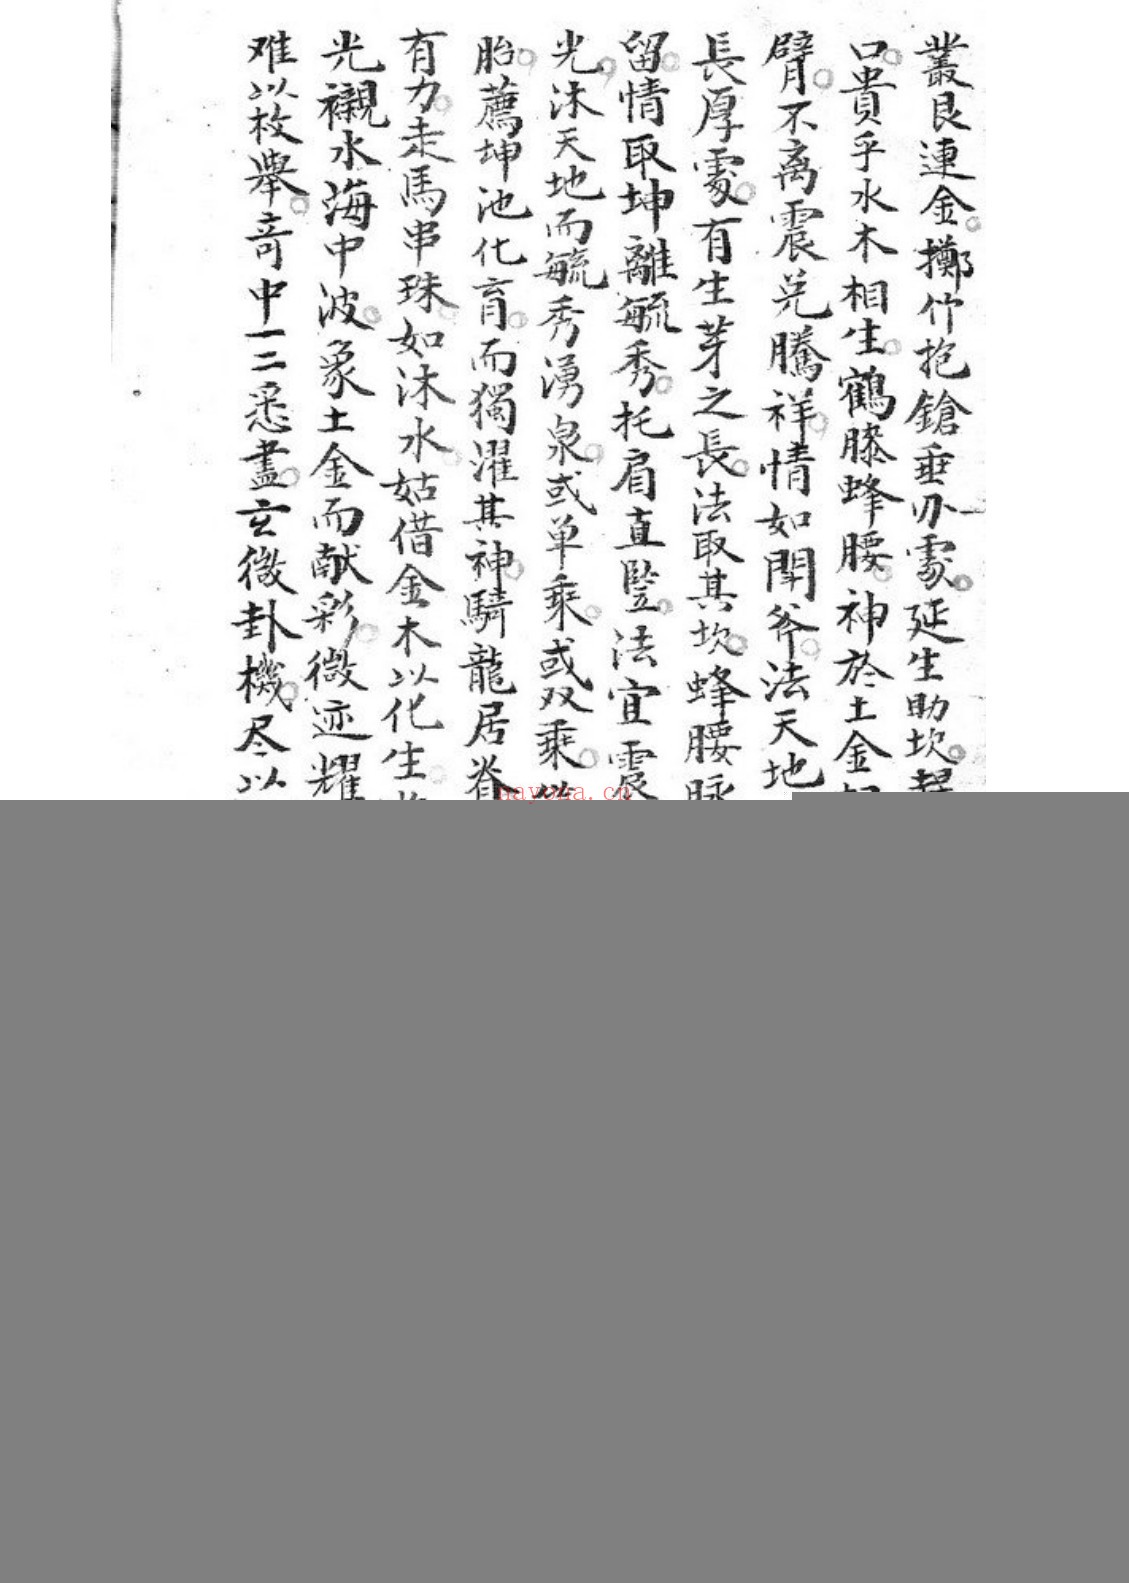 叢艮連金擲竹抱鎗垂刅處延生助坎
口貴乎水木相生鶴膝蜂腰神於土金
臂不离震兑騰祥情如閗斧法天地
長厚處有生芽之長法取其坎蜂腰脉
留情取坤離毓秀托肩直豎法宜震
光沐天地而毓秀湧泉或单乘或双乘
胎薦坤池化育而獨濯其神騎龍居脊
有力走馬串珠如沐水姑借金木以化生
光襯水海中波象土金而献彩微迹耀
难以枚舉竒中一二悉盡玄微卦機尽以